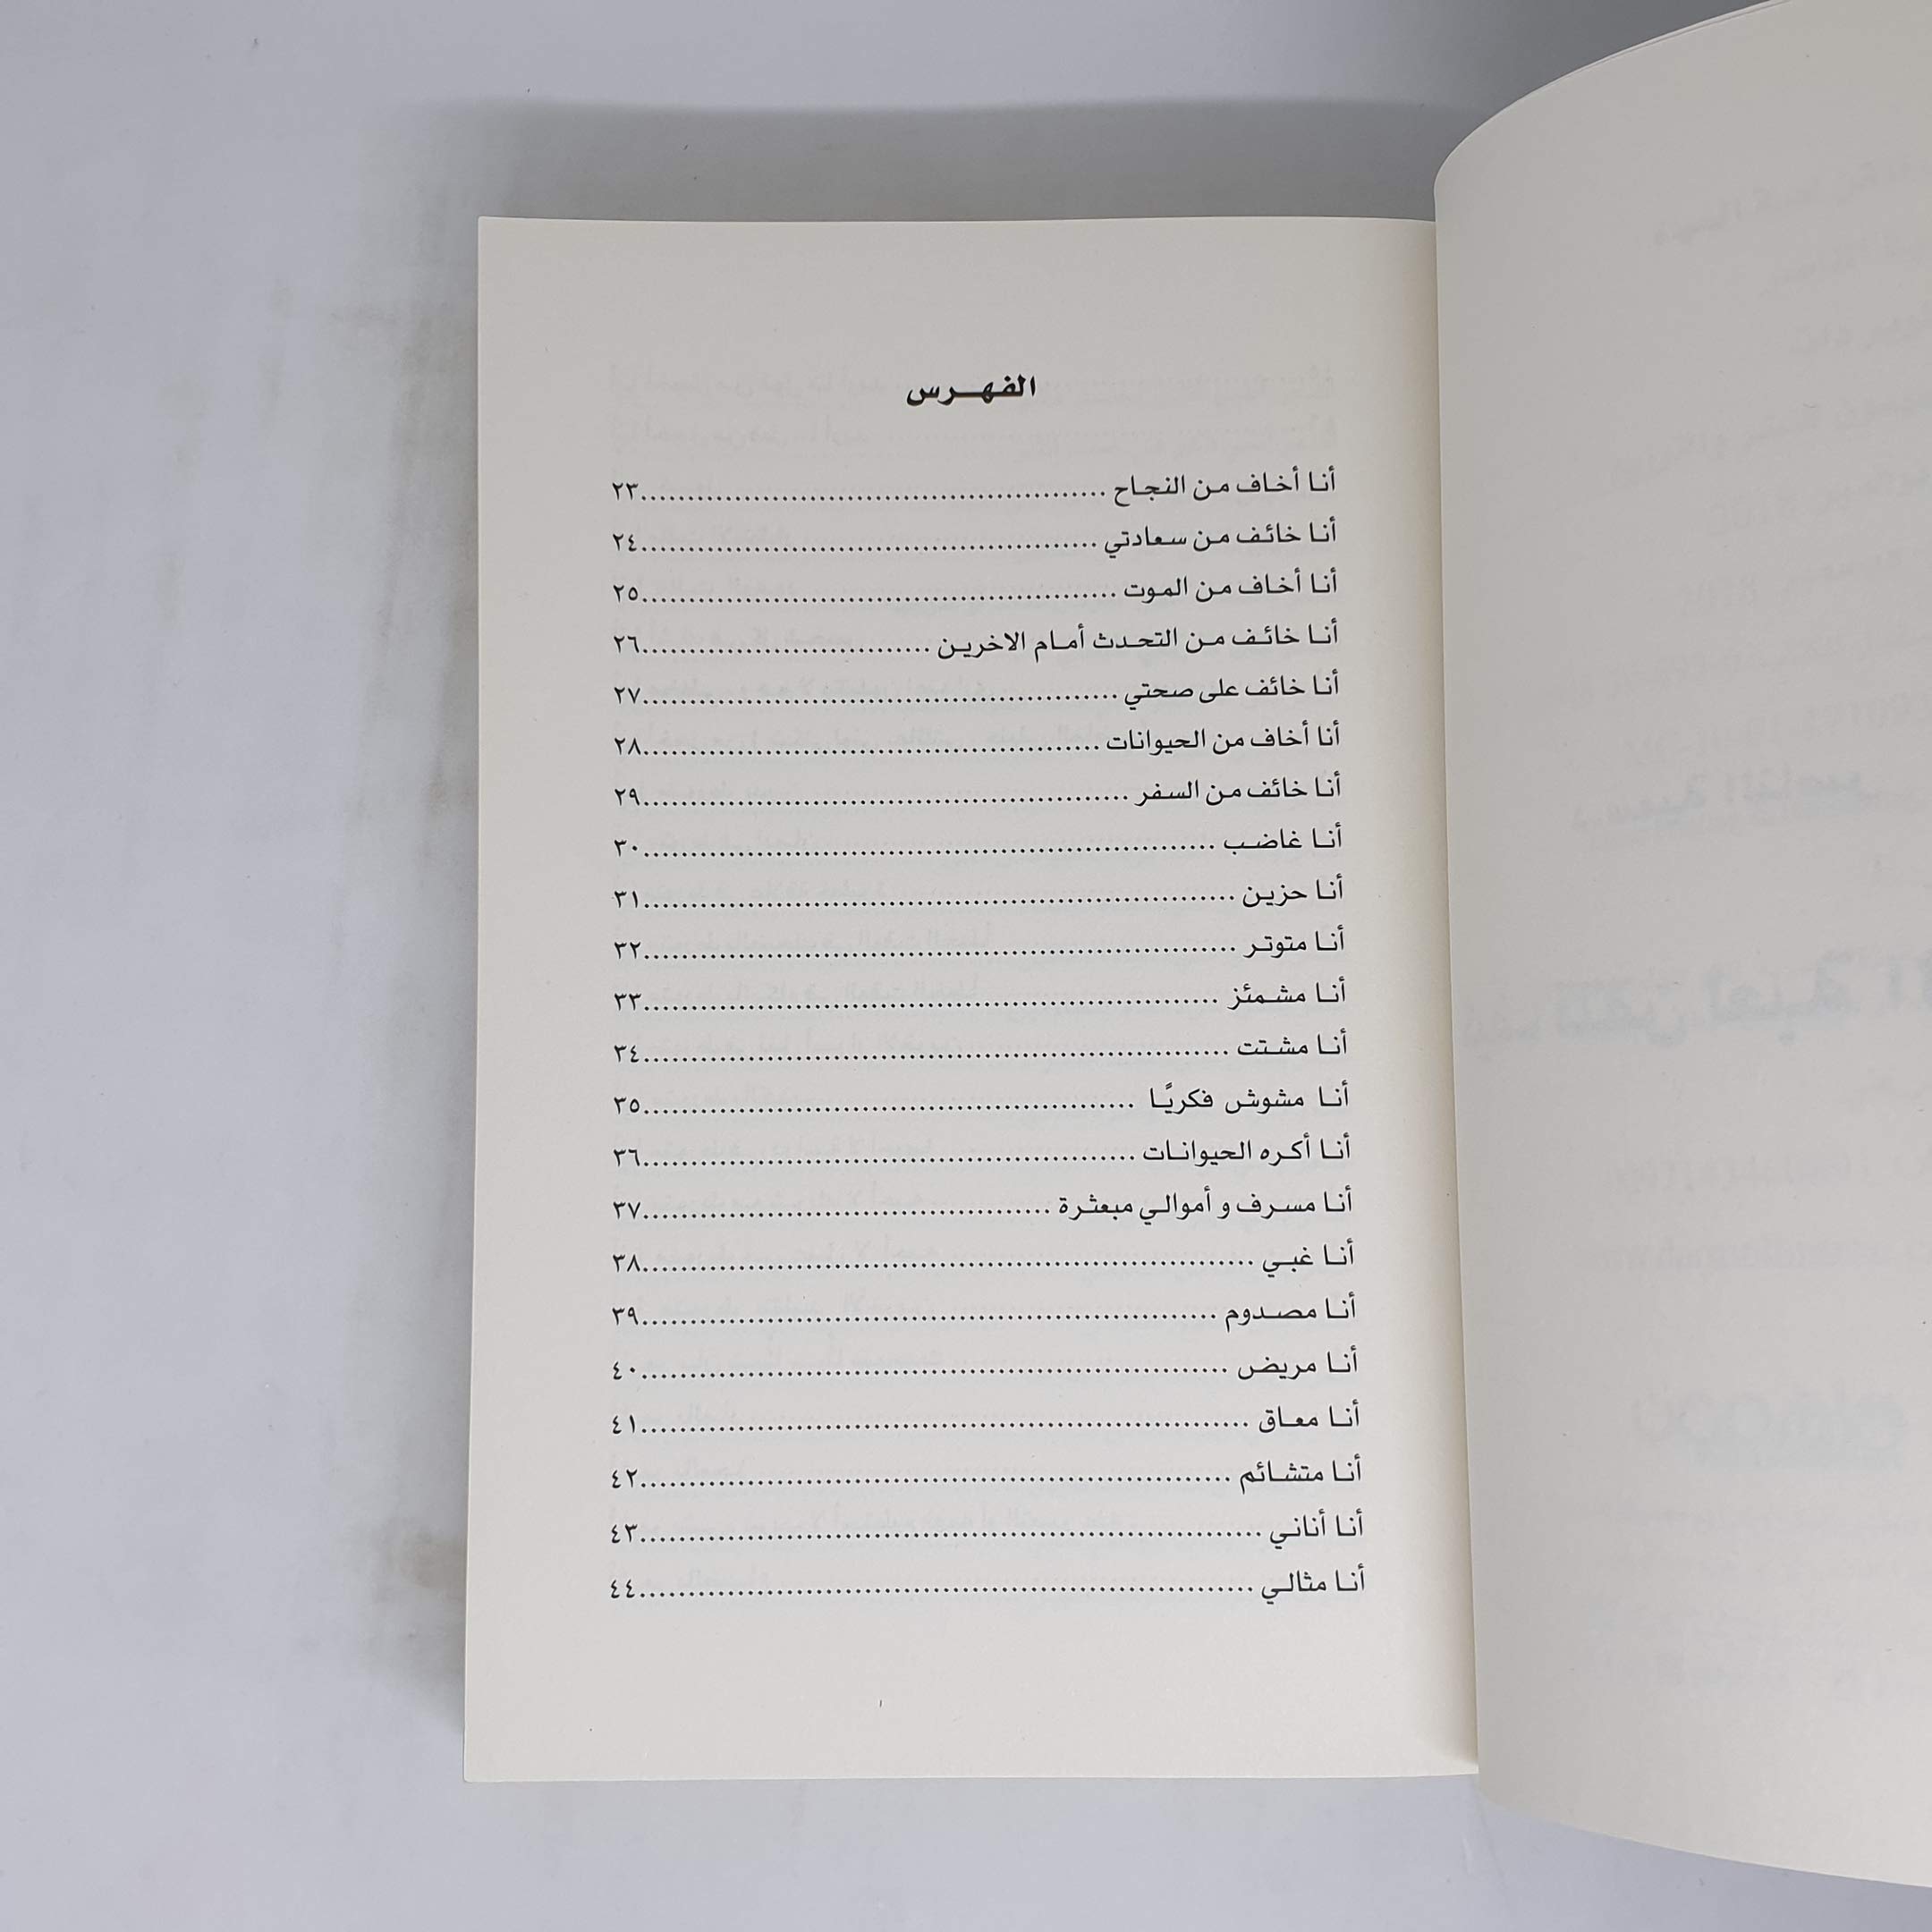 الفهرس
أنا أخاف من النجاح ..................................................٢٣
أنا خائف من سعادتي ..................................................٢٤
أنا أخاف من الموت ..................................................٢٥
أنا خائف من التحدث أمام الاخرين ..............................٢٦
أنا خائف على صحتي ..................................................٢٧
أنا أخاف من الحيوانات ..................................................٢٨
أنا خائف من السفر ..................................................٢٩
أنا غاضب ............................................................٣٠
أنا حزين ............................................................٣١
أنا متوتر ............................................................٣٢
أنا مشمئز ............................................................٣٣
أنا مشتت ............................................................٣٤
أنا مشوش فكريًا ..................................................٣٥
أنا أكره الحيوانات ..................................................٣٦
أنا مسرف و أموالي مبعثرة ..........................................٣٧
أنا غبي ............................................................٣٨
أنا مصدوم ............................................................٣٩
أنا مريض ............................................................٤٠
أنا معاق ............................................................٤١
أنا متشائم ............................................................٤٢
أنا أناني ............................................................٤٣
أنا مثالي ............................................................٤٤